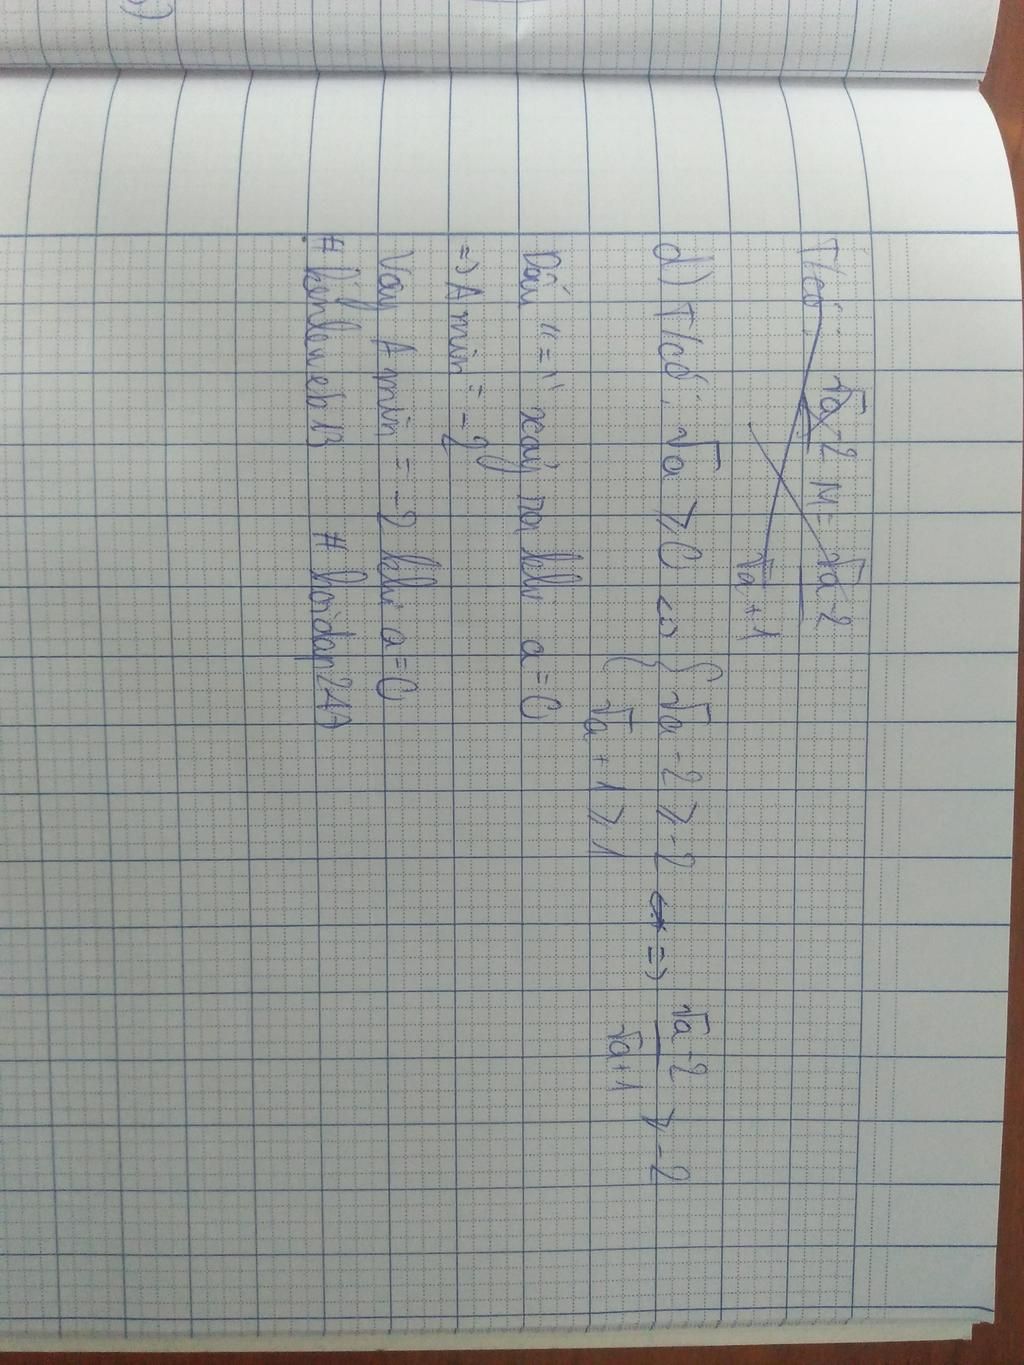 T/có: √a-2 M= √a-2
√a+1
d) T/có: √a ⩾ 0 <=> { √a-2 ⩾ -2 => √a-2 ⩾ -2
√a+1 ⩾ 1 √a+1
Dấu "=" xảy ra khi a=0
=> A min = -2
Vậy A min = -2 khi a=0
# kenloveb13 # hoidap247